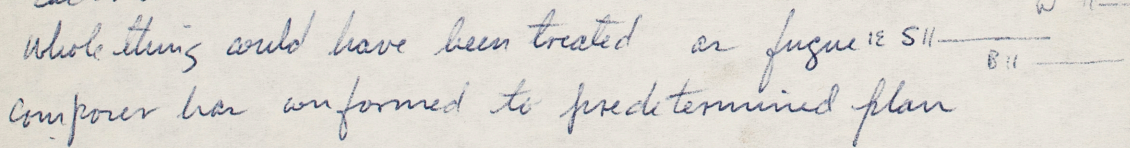 whole thing could have been treated as fugue IE S11
B11
composer has conformed to predetermined plan